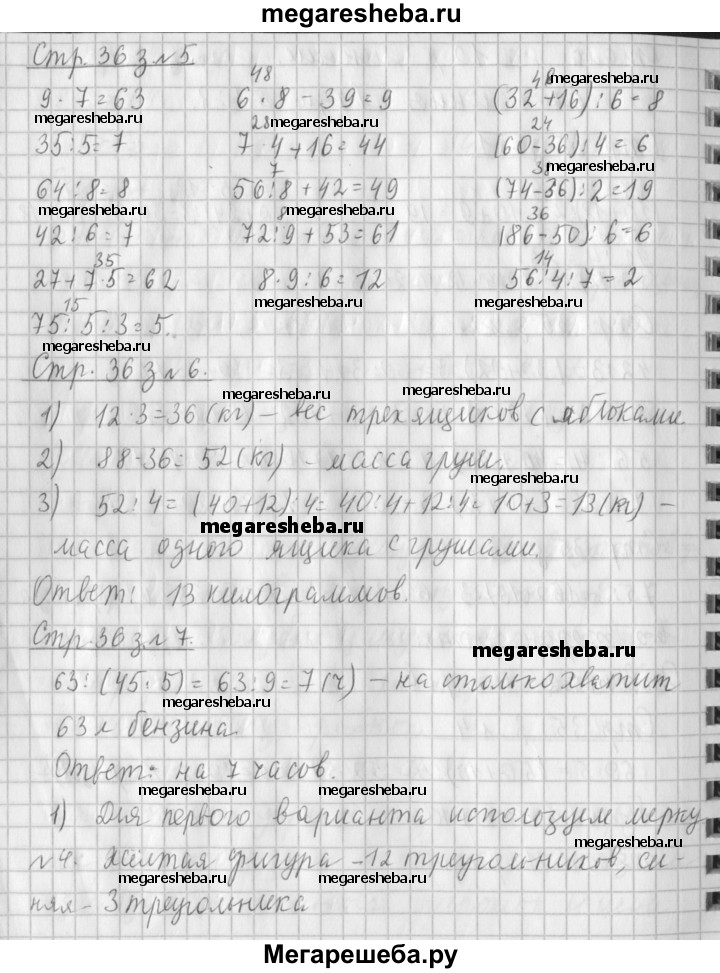 megaresheba.ru
Стр. 36 з № 5.
48 48 megaresheba.ru
9 · 7 = 63 6 · 8 - 39 = 9 (32+16) : 6 = 8
megaresheba.ru 28 megaresheba.ru 24
35 : 5 = 7 7 · 4 + 16 = 44 (60-36) : 4 = 6
7 38 megaresheba.ru
64 : 8 = 8 56 : 8 + 42 = 49 (74-36) : 2 = 19
megaresheba.ru 8 megaresheba.ru 36 megaresheba.ru
42 : 6 = 7 72 : 9 + 53 = 61 (86-50) : 6 = 6
35 14
27 + 7 · 5 = 62 8 · 9 : 6 = 12 56 : 4 : 7 = 2
15 megaresheba.ru megaresheba.ru
75 : 5 : 3 = 5.
megaresheba.ru
Стр. 36 з № 6.
megaresheba.ru megaresheba.ru
1) 12 · 3 = 36 (кг) – вес трех ящиков с яблоками
2) 88 - 36 = 52 (кг) – масса груш.
megaresheba.ru
3) 52 : 4 = (40+12) : 4 = 40 : 4 + 12 : 4 = 10 + 3 = 13 (кг) –
megaresheba.ru
масса одного ящика с грушами.
megaresheba.ru
Ответ: 13 килограммов.
Стр. 36 з № 7.
megaresheba.ru
63 : (45 : 5) = 63 : 9 = 7 (ч) – на столько хватит
megaresheba.ru
63 л бензина.
Ответ: на 7 часов.
megaresheba.ru megaresheba.ru
1) Для первого варианта используем мерку
megaresheba.ru
№ 4. Жёлтая фигура – 12 треугольников, си-
megaresheba.ru megaresheba.ru
няя – 3 треугольника
Мегарешеба.ру